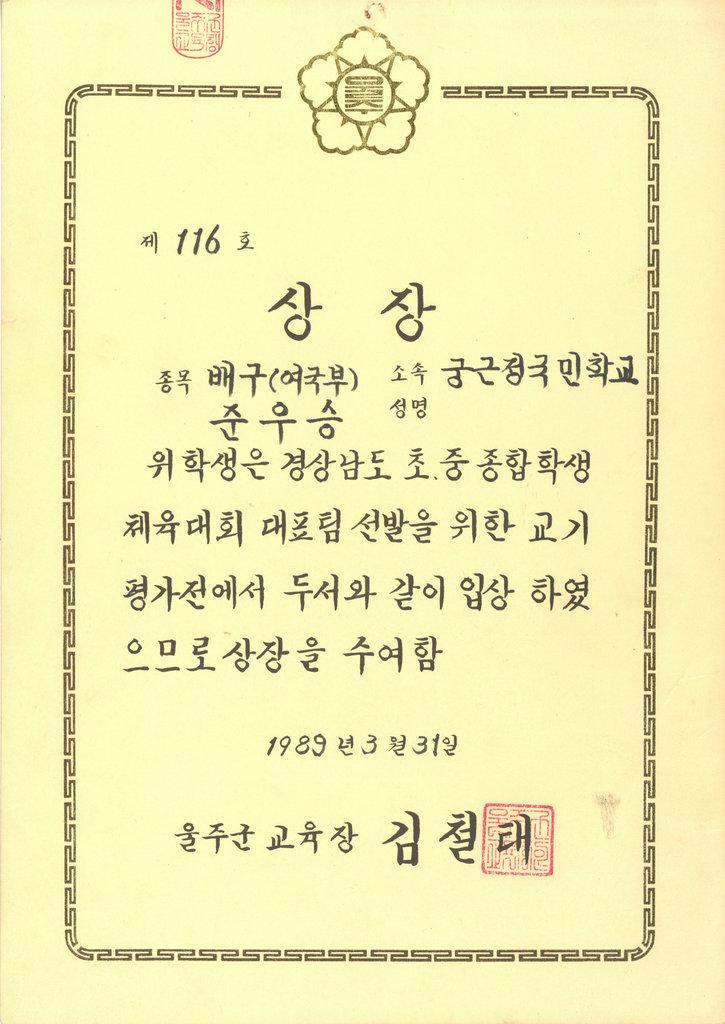 제 116 호
상 장
종목 배구(여국부) 소속 궁근정국민학교
준우승 성명
위 학생은 경상남도 초.중 종합 학생
체육대회 대표팀 선발을 위한 교기
평가전에서 두서와 같이 입상 하였
으므로 상장을 수여함
1989년 3월 31일
울주군 교육장 김철태